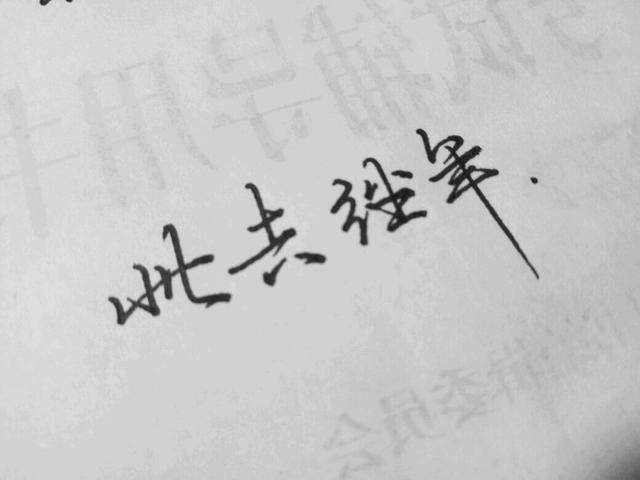 此去经年.